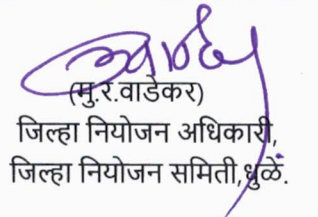 (मु.र.वाडेकर)
जिल्हा नियोजन अधिकारी,
जिल्हा नियोजन समिती,धुळे.